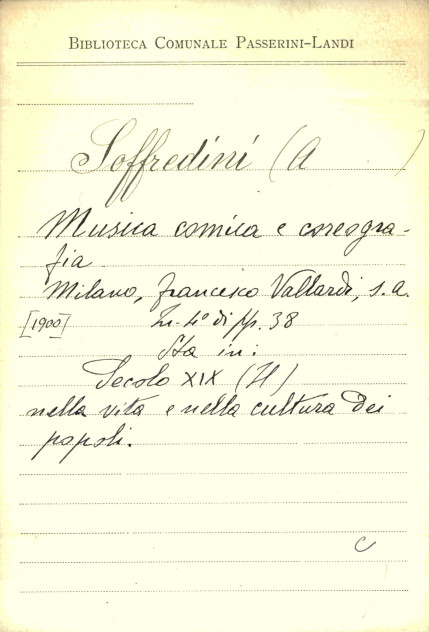 BIBLIOTECA COMUNALE PASSERINI-LANDI
Soffredini (A )
Musica comica e coreogra-
fia
Milano, Francesco Vallardi, s.a.
[1900] In-4° di pp. 38
Sta in:
Secolo XIX (Il)
nella vita e nella cultura dei
popoli.
C